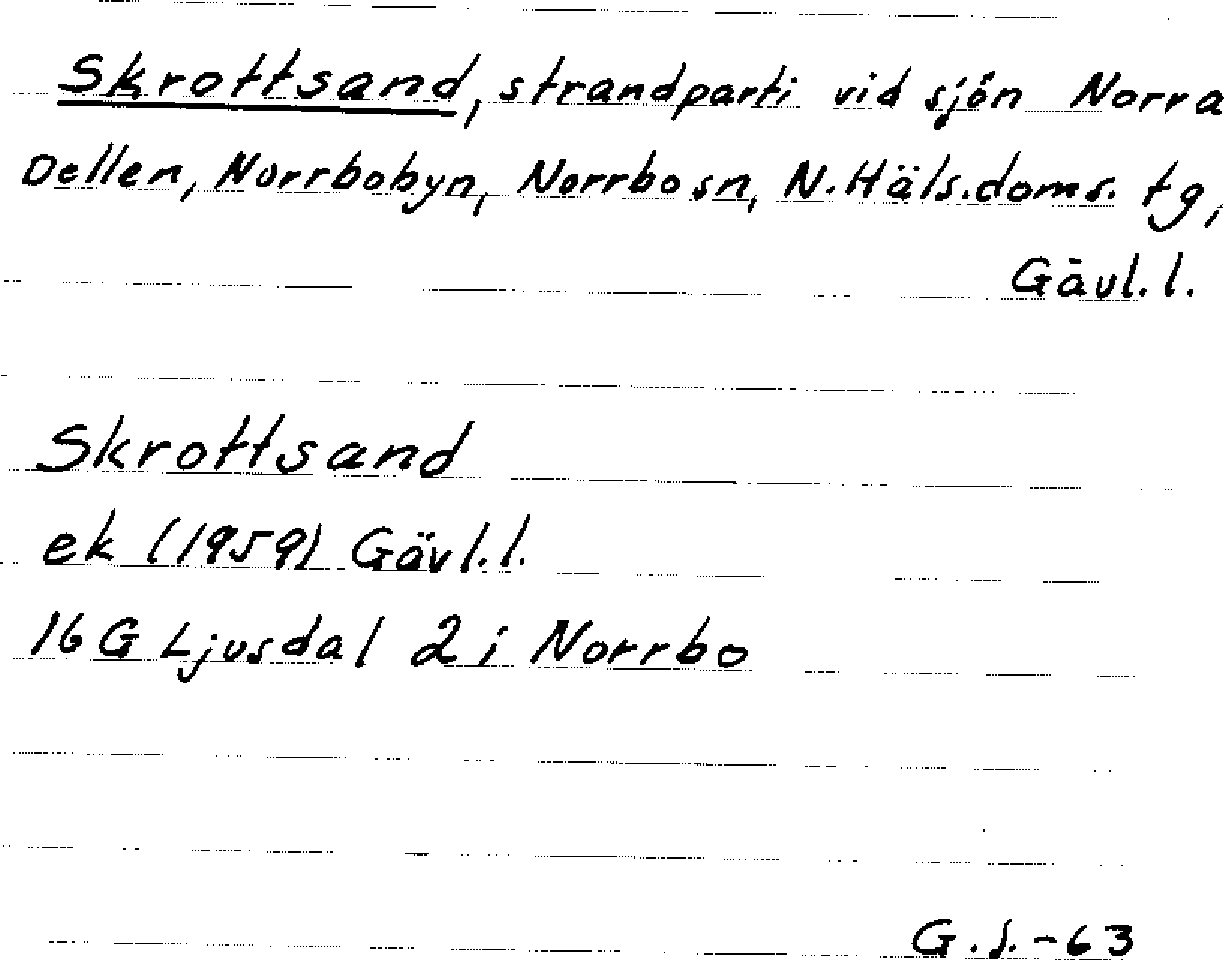 Skrottsand, strandparti vid sjön Norra
Dellen, Norrbobyn, Norrbo sn, N. Häls. doms. tg,
Gävl. l.
Skrottsand
ek (1959) Gävl. l.
16 G Ljusdal 2 i Norrbo
G. J. -63